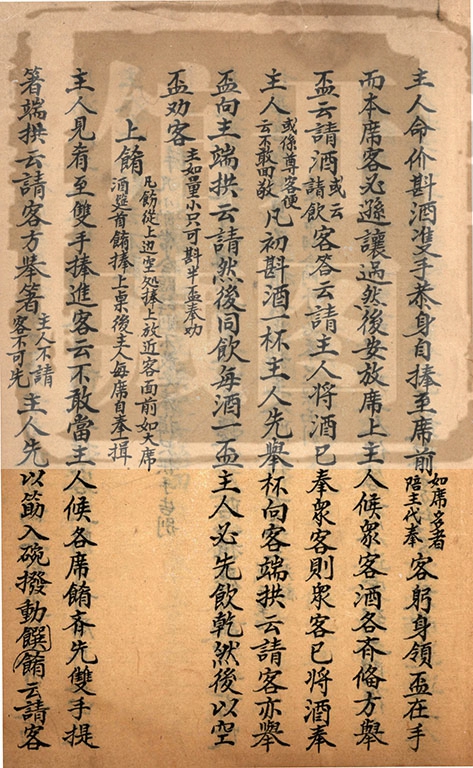 主人命价斟酒雙手恭身自捧至席前如席多者陪主代奉客躬身領盃在手
而本席客必遜讓過然後安放席上主人候衆客酒各斉俻方舉
盃云請酒或云請飲客答云請主人將酒已奉衆客則衆客已將酒奉
主人或係尊客便云不敢回敬凡初斟酒一杯主人先舉杯向客端拱云請客亦舉
盃向主端拱云請然後同飲每酒一盃主人必先飲乾然後以空
盃劝客主如量小只可斟半盃奉劝
上餚凡餚從上边空処捧上放近客面前如大席酒筵首餚捧上桌後主人每席自奉一揖
主人見肴至雙手捧進客云不敢當主人候各席餚斉先雙手提
箸端拱云請客方舉箸主人不請客不可先主人先以筯入碗撥動饌餚云請客